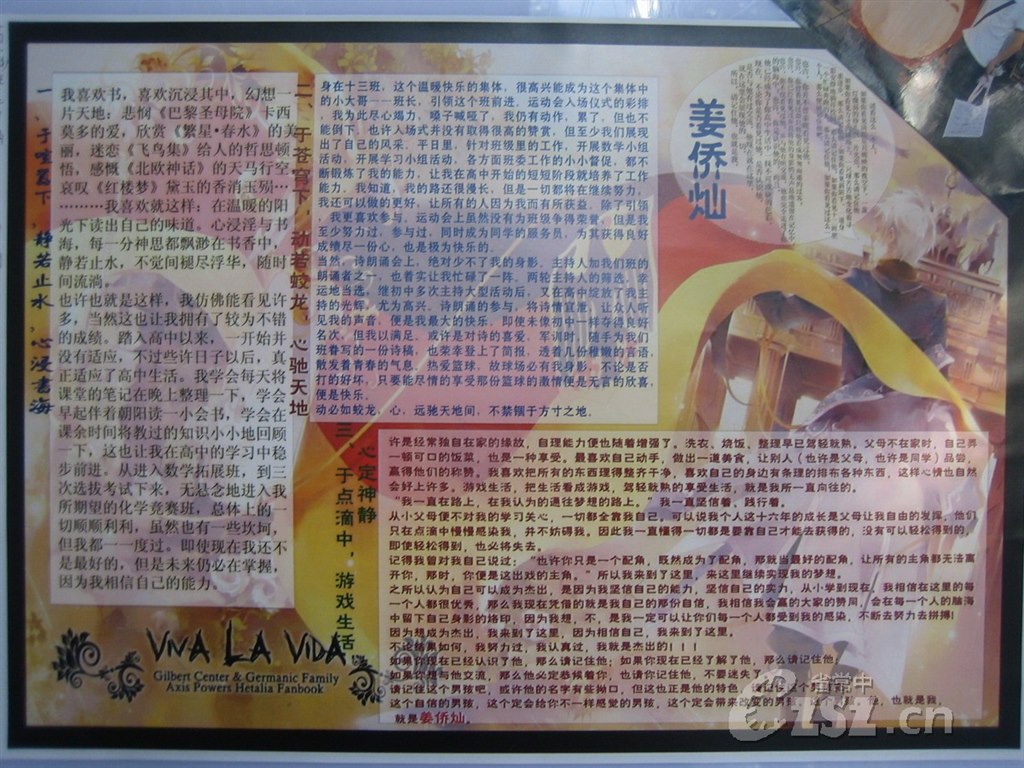 一、于喧嚣下，静若止水，心浸书海
我喜欢书，喜欢沉浸其中，幻想一
片天地：悲悯《巴黎圣母院》卡西
莫多的爱，欣赏《繁星·春水》的美
丽，迷恋《飞鸟集》给人的哲思顿
悟，感慨《北欧神话》的天马行空
哀叹《红楼梦》黛玉的香消玉殒…
………我喜欢就这样：在温暖的阳
光下读出自己的味道。心浸淫与书
海，每一分神思都飘渺在书香中，
静若止水，不觉间褪尽浮华，随时
间流淌。
也许也就是这样，我仿佛能看见许
多，当然这也让我拥有了较为不错
的成绩。踏入高中以来，一开始并
没有适应，不过些许日子以后，真
正适应了高中生活。我学会每天将
课堂的笔记在晚上整理一下，学会
早起伴着朝阳读一小会书，学会在
课余时间将教过的知识小小地回顾
一下，这也让我在高中的学习中稳
步前进。从进入数学拓展班，到三
次选拔考试下来，无悬念地进入我
所期望的化学竞赛班，总体上的一
切顺顺利利，虽然也有一些坎坷，
但我都一一度过。即使现在我还不
是最好的，但是未来仍必在掌握，
因为我相信自己的能力。
二、于苍穹下，动若蛟龙，心驰天地
身在十三班，这个温暖快乐的集体，很高兴能成为这个集体中
的小大哥——班长，引领这个班前进。运动会入场仪式的彩排
，我为此尽心竭力，嗓子喊哑了，我仍有动作，累了，但也不
能倒下，也许入场式并没有取得很高的赞赏，但至少我们展现
出了自己的风采。平日里，针对班级里的工作，开展数学小组
活动，开展学习小组活动，各方面班委工作的小小督促，都不
断锻炼了我的能力，让我在高中开始的短短阶段就培养了工作
能力。我知道，我的路还很漫长，但是一切都将在继续努力，
我还可以做的更好，让所有的人因为我而有所获益。除了引领
，我更喜欢参与。运动会上虽然没有为班级争得荣誉，但是我
至少努力过，参与过，同时成为同学的服务员，为其获得良好
成绩尽一份心，也是极为快乐的。
当然，诗朗诵会上，绝对少不了我的身影。主持人如我们班的
朗诵者之一，也着实让我忙碌了一阵。两轮主持人的筛选，幸
运地当选，继初中多次主持大型活动后，又在高中绽放了我主
持的光辉，尤为高兴。诗朗诵的参与，将诗情宣泄，让众人听
见我的声音，便是我最大的快乐。即使未像初中一样夺得良好
名次，但我以满足。或许是对诗的喜爱，军训时，随手为我们
班眷写的一份诗稿，也荣幸登上了简报，透着几份稚嫩的言语，
散发着青春的气息。热爱篮球，故球场必有我身影，不论是否
打的好坏，只要能尽情的享受那份篮球的激情便是无言的欣喜，
便是快乐。
动必如蛟龙，心，远驰天地间，不禁锢于方寸之地。
姜侨灿
三、于点滴中，游戏生活
心定神静
许是经常独自在家的缘故，自理能力便也随着增强了。洗衣、烧饭、整理早已驾轻就熟。父母不在家时，自己弄
一顿可口的饭菜，也是一种享受。最喜欢自己动手，做出一道美食，让别人（也许是父母，也许是同学）品尝，
赢得他们的称赞。我喜欢把所有的东西理得整齐干净，喜欢自己的身边有条理的排布各种东西，这样心情也自然
会好上许多。游戏生活，把生活看成游戏，驾轻就熟的享受生活，就是我所一直向往的。
“我一直在路上，在我认为的通往梦想的路上。”我一直坚信着，践行着。
从小父母便不对我的学习关心，一切都全靠我自己，可以说我个人这十六年的成长是父母让我自由的发挥，他们
只在点滴中慢慢感染我，并不妨碍我。因此我一直懂得一切都是要靠自己才能去获得的，没有可以轻松得到的，
即使轻松得到，也必将失去。
记得我曾对我自己说过：“也许你只是一个配角，既然成为了配角，那就当最好的配角，让所有的主角都无法离
开你，那时，你便是这出戏的主角。”所以我来到了这里，来这里继续实现我的梦想。
之所以认为自己可以成为杰出，是因为我坚信自己的能力，坚信自己的实力，从小学到现在，我相信在这里的每
一个人都很优秀，那么我现在凭借的就是我自己的那份自信，我相信我会赢的大家的赞同，会在每一个人的脑海
中留下自己身影的烙印，因为我想，不，是我一定可以让你们每一个人都受到我的感染，不断去努力去拼搏！
因为想成为杰出，我来到了这里，因为相信自己，我来到了这里。
不论结果如何，我努力过，我认真过，我就是杰出的！！！
如果你现在已经认识了他，那么请记住他；如果你现在已经了解了他，那么请记住他；
如果你想与他交流，那么他必定恭候着你，也请你记住他，不要迷失了
请记住这个男孩吧，或许他的名字有些拗口，但这也正是他的特色，
这个自信的男孩，这个定会给你不一样感觉的男孩，这个定会带来改变的男孩，他，也就是我，
就是姜侨灿。
VIVA LA VIDA
Gilbert Center & Germanic Family
Axis Powers Hetalia Fanbook
省常中
CZSZ.cn